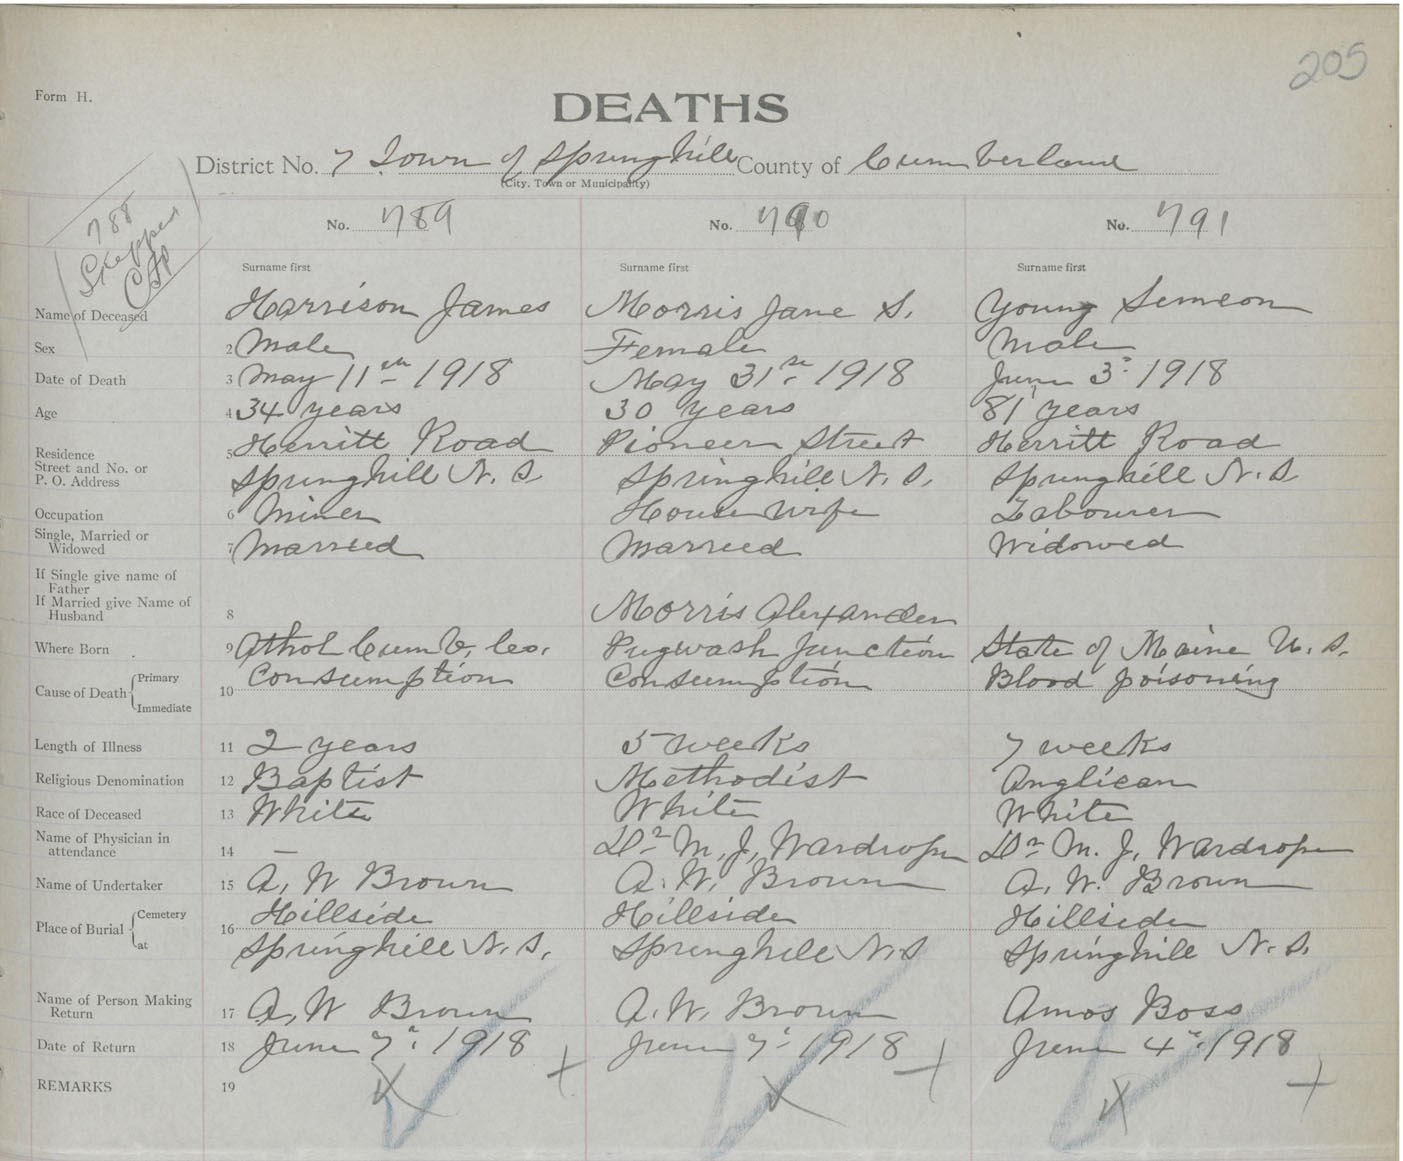 205
Form H.
DEATHS
District No. 7 Town of Springhill County of Cumberland
(City, Town or Municipality)
788
Skipped
No. 789 No. 790 No. 791
Surname first Surname first Surname first
Name of Deceased Harrison James Morris Jane S. Young Simeon
Sex 2 Male Female Male
Date of Death 3 May 11th 1918 May 31st 1918 June 3" 1918
Age 4 34 years 30 years 81 years
Residence
Street and No. or
P. O. Address
5 Herritt Road Pioneer Street Herritt Road
Springhill N. S. Springhill N. S. Springhill N. S.
Occupation 6 Miner House Wife Labourer
Single, Married or
Widowed
7 Married Married Widowed
If Single give name of
Father
If Married give Name of
Husband
8 Morris Alexander
Where Born 9 Athol Cumb. Co. Pugwash Junction State of Maine U. S.
Cause of Death Primary
Immediate
10 Consumption Consumption Blood poisoning
Length of Illness 11 2 years 5 weeks 7 weeks
Religious Denomination 12 Baptist Methodist Anglican
Race of Deceased 13 White White White
Name of Physician in
attendance
14 — Dr M. J. Wardrope Dr M. J. Wardrope
Name of Undertaker 15 A. W Brown A. W. Brown A. W. Brown
Place of Burial Cemetery
at
16 Hillside Hillside Hillside
Springhill N. S. Springhill N. S Springhill N. S.
Name of Person Making
Return
17 A. W Brown A. W. Brown Amos Boss
Date of Return 18 June 7" 1918 June 7" 1918 June 4" 1918
REMARKS 19